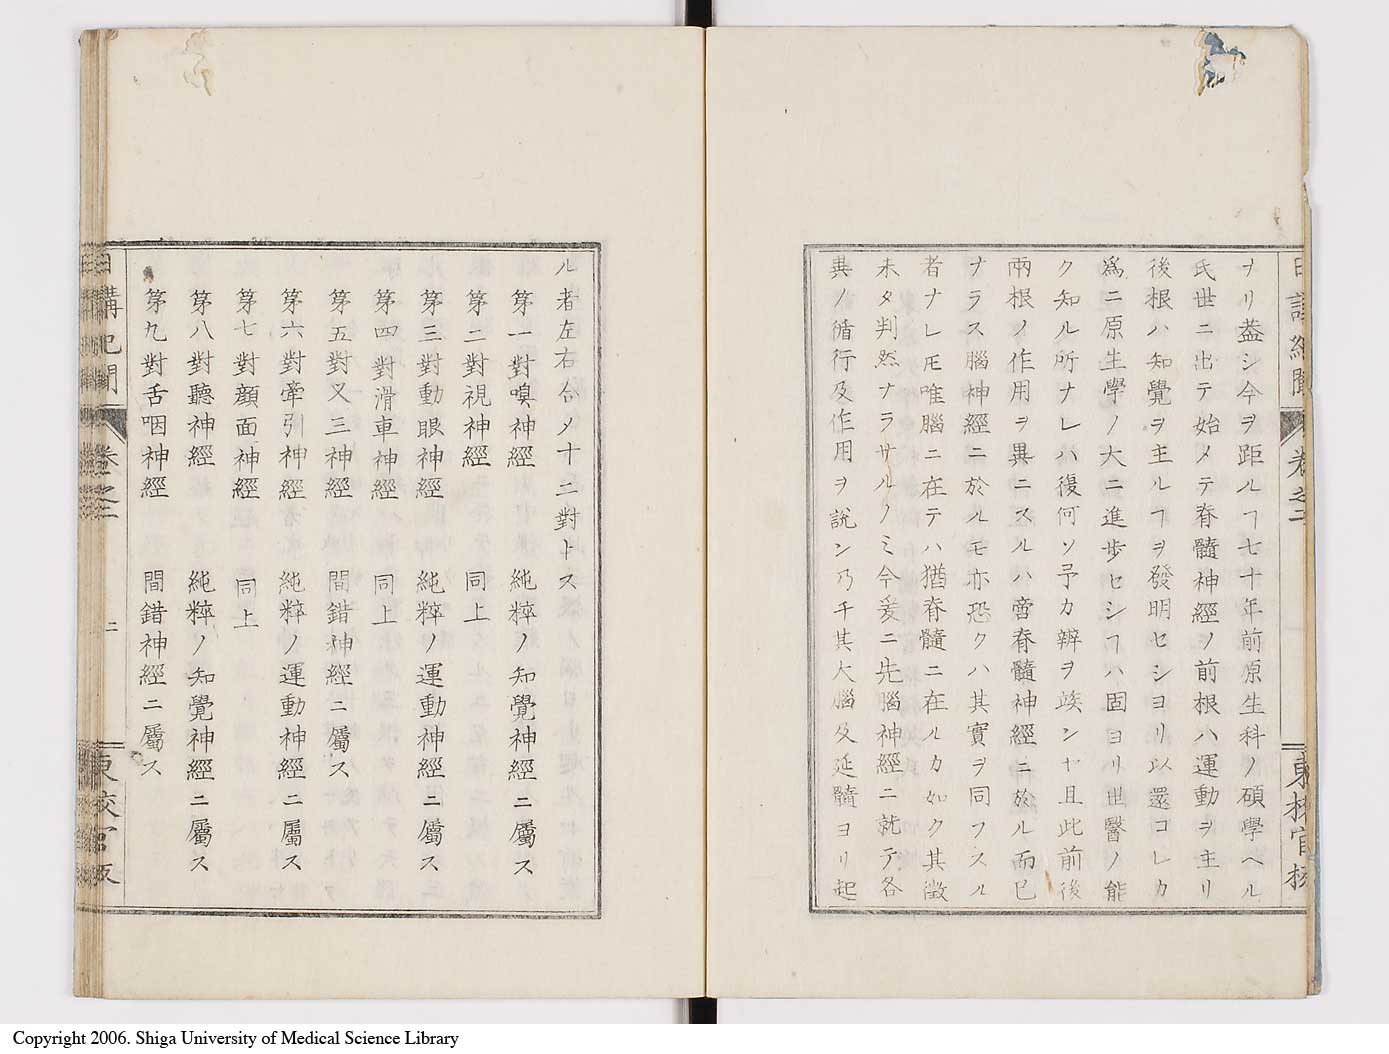 日講紀聞 卷之二 東校官板
ナリ葢シ今ヲ距ルヿ七十年前原生科ノ碩學ヘル
氏世ニ出テ始メテ脊髓神經ノ前根ハ運動ヲ主リ
後根ハ知覺ヲ主ルヿヲ發明セシヨリ以還コレカ
爲ニ原生學ノ大ニ進歩セシヿハ固ヨリ世醫ノ能
ク知ル所ナレハ復何ソ予カ辨ヲ竢ンヤ且此前後
兩根ノ作用ヲ異ニスルハ啻脊髓神經ニ於ル而已
ナラス腦神經ニ於ルモ亦恐クハ其實ヲ同フスル
者ナレㄛ唯腦ニ在テハ猶脊髓ニ在ルカ如ク其徴
未タ判然ナラサルノミ今爰ニ先腦神經ニ就テ各
異ノ循行及作用ヲ說ン乃チ其大腦及延髓ヨリ起
ル者左右合メ十二對トス
苐一對嗅神經 純粹ノ知覺神經ニ屬ス
苐二對視神經 同上
苐三對動眼神經 純粹ノ運動神經ニ屬ス
苐四對滑車神經 同上
苐五對叉三神經 間錯神經ニ屬ス
苐六對牽引神經 純粹ノ運動神經ニ屬ス
苐七對顔面神經 同上
苐八對聽神經 純粹ノ知覺神經ニ屬ス
苐九對舌咽神經 間錯神經ニ屬ス
日講紀聞 卷之二 二 東校官板
Copyright 2006. Shiga University of Medical Science Library